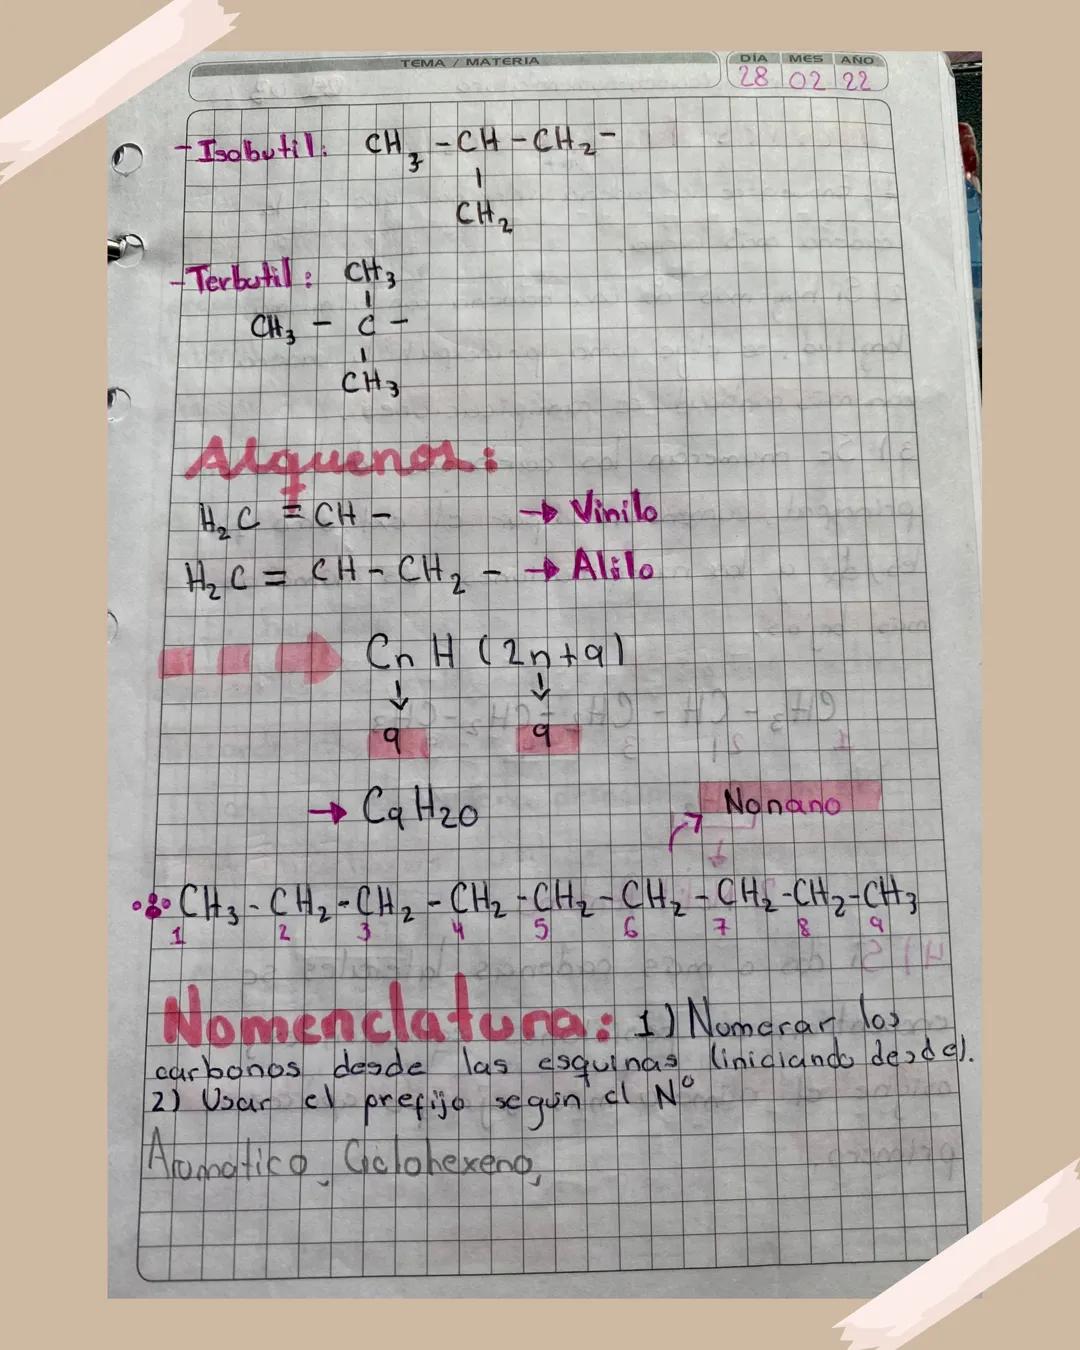 TEMA / MATERIA
DÍA MES AÑO
28 02 22
-Isobutil: CH₃ - CH - CH₂ -
CH₂
-Terbutil: CH₃
CH₃ - C -
CH₃
Alquenos:
H₂C = CH - → Vinilo
H₂C = CH - CH₂ - → Alilo
Cn H (2n+9)
↓ ↓
9 9
→ C9H20
Nonano
CH₃ - CH₂ - CH₂ - CH₂ - CH₂ - CH₂ - CH₂ - CH₂ - CH₃
1 2 3 4 5 6 7 8 9
Nomenclatura: 1) Numerar los
carbonos desde las esquinas (iniciando desde).
2) Usar el prefijo según el N°
Aromatico, Ciclohexeno,